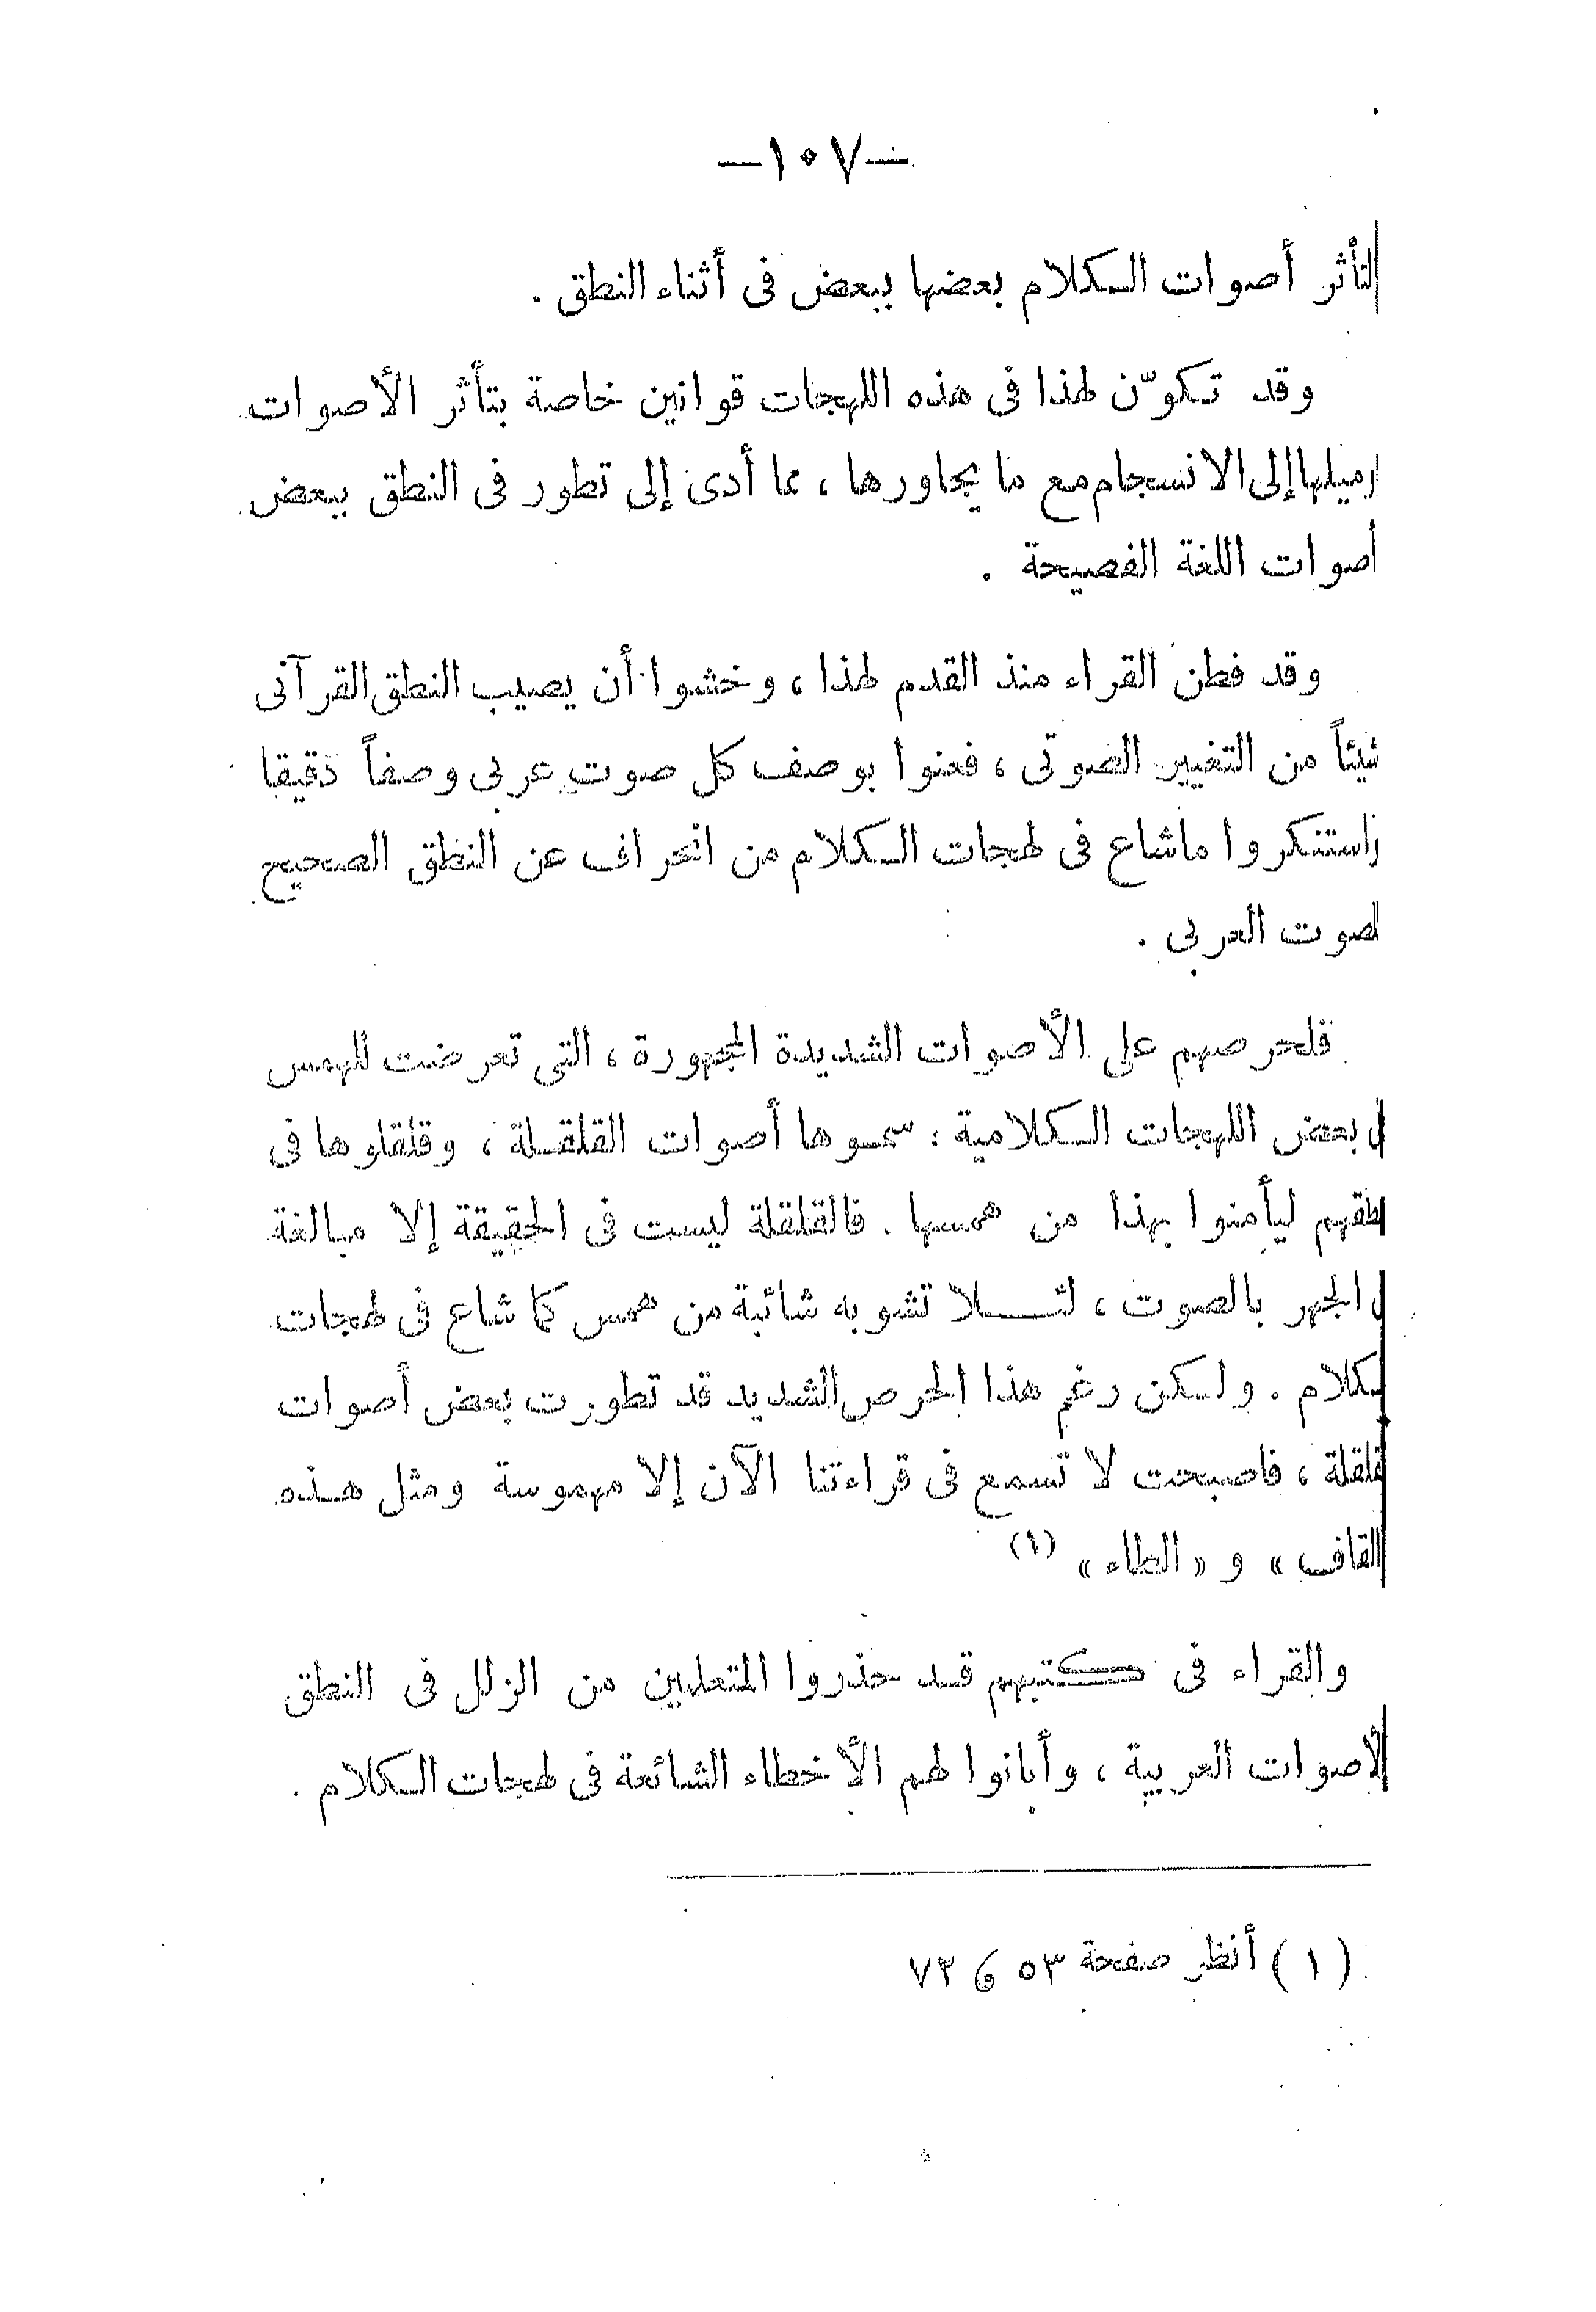 —١٠٧—
لتأثر أصوات الكلام بعضها ببعض فى أثناء النطق .
وقد تكوّن لهذا فى هذه اللهجات قوانين خاصة بتأثر الأصوات
وميلها إلى الانسجام مع ما يجاورها ، مما أدى إلى تطور فى النطق ببعض
أصوات اللغة الفصيحة .
وقد فطن القراء منذ القدم لهذا ، وخشوا أن يصيب النطق القرآنى
شيئاً من التغيير الصوتى ، فعنوا بوصف كل صوت عربى وصفاً دقيقا
واستنكروا ماشاع فى لهجات الكلام من انحراف عن النطق الصحيح
لصوت العربى .
فلحرصهم على الأصوات الشديدة المجهورة ، التى تعرضت للهمس
فى بعض اللهجات الكلامية ؛ سموها أصوات القلقلة ، وقلقلوها فى
طقهم ليأمنوا بهذا من همسها . فالقلقلة ليست فى الحقيقة إلا مبالغة
فى الجهر بالصوت ، لئلا تشوبه شائبة من همس كما شاع فى لهجات
لكلام . ولكن رغم هذا الحرص الشديد قد تطورت بعض أصوات
قلقلة ، فاصبحت لا تسمع فى قراءتنا الآن إلا مهموسة ومثل هذه
القاف » و « الطاء » (١)
والقراء فى كتبهم قد حذروا المتعلمين من الزلل فى النطق
لأصوات العربية ، وأبانوا لهم الأخطاء الشائعة فى لهجات الكلام .
(١) أنظر صفحة ٥٣ و ٧٣